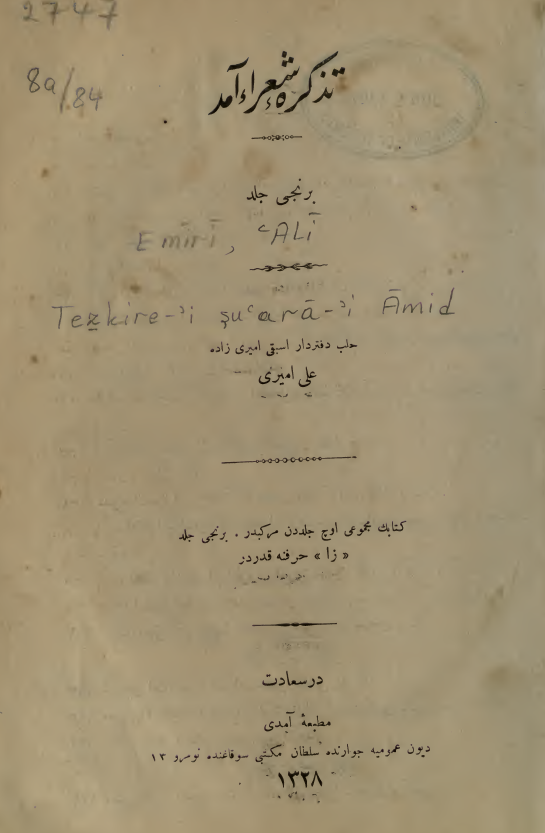 2747
8a/84
تذكرهٔ شعراء آمد
برنجى جلد
Emīrī, ʿALī
Teẕkire-ʾi şuʿarā-ʾi Āmid
حلب دفتردار اسبقى اميرى زاده
على اميرى
كتابك مجموعى اوچ جلددن مركبدر . برنجى جلد
« زا » حرفنه قدردر
درسعادت
مطبعۀ آمدى
ديون عموميه جوارنده سلطان مكتبى سوقاغنده نومرو ١٣
١٣٢٨